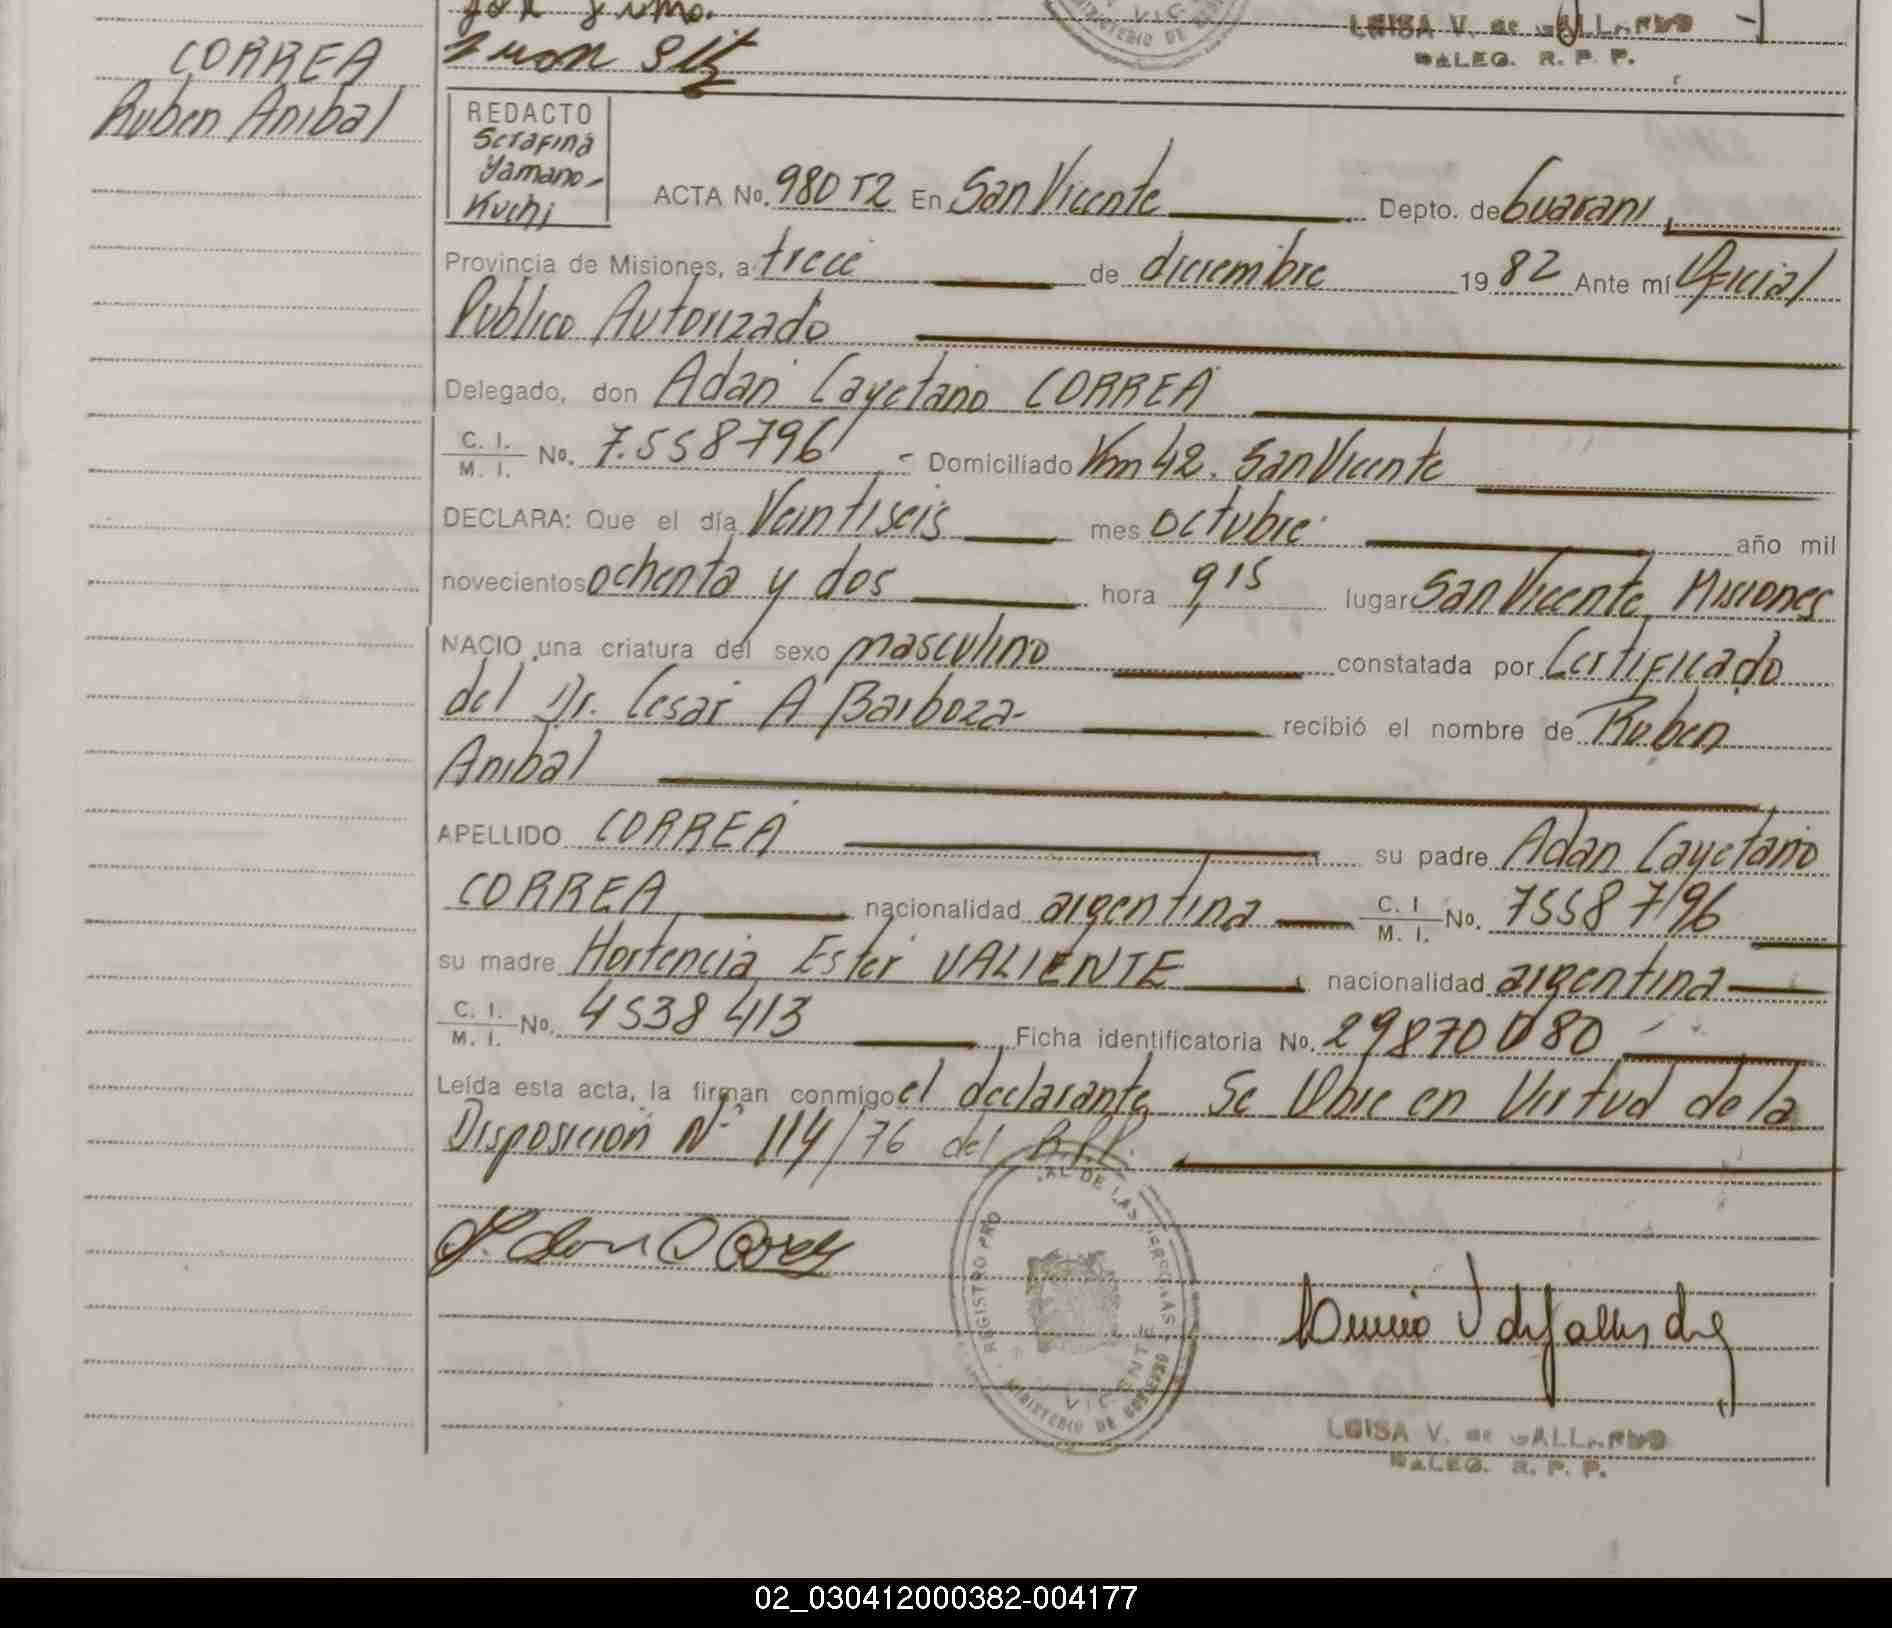 CORREA
Ruben Anibal
LUISA V. de GALLARDO
DALEG. R. P. P.
REDACTO
Serafina
Yamano-
Kuchi
ACTA No. 980 T2 En San Vicente Depto. de Guarani
Provincia de Misiones, a trece de diciembre 1982 Ante mí Oficial
Publico Autorizado
Delegado, don Adan Cayetano CORREA
C. I. / M. I. No. 7.558796 - Domiciliado Km 42. San Vicente
DECLARA: Que el día Veintiseis mes octubre año mil
novecientos ochenta y dos hora 9,15 lugar San Vicente, Misiones
NACIO una criatura del sexo masculino constatada por Certificado
del Dr. Cesar A Barboza- recibió el nombre de Ruben
Anibal
APELLIDO CORREA su padre Adan Cayetano
CORREA nacionalidad argentina C. I / M. I. No. 7558796
su madre Hortencia Ester VALIENTE nacionalidad argentina
C. I. / M. I. No. 4538413 Ficha identificatoria No. 29870080
Leída esta acta, la firman conmigo el declarante Se Obre en Virtud de la
Disposicion Nº 114/76 del R.P.P.
REGISTRO PRO AL DE LAS PERSONAS
VICENTE
MINISTERIO DE GOBIERNO
LUISA V. de GALLARDO
DALEG. R. P. P.
02_030412000382-004177